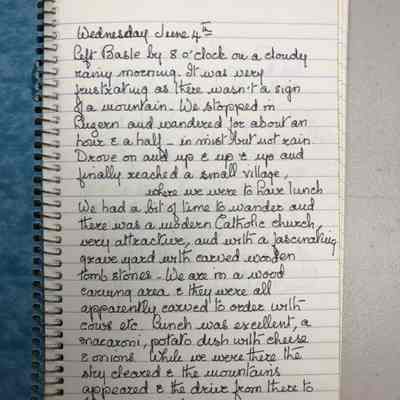 Wednesday June 4th
Left Basle by 8 o'clock on a cloudy
rainy morning. It was very
frustrating as there wasn't a sign
of a mountain. We stopped in
Luzern and wandered for about an
hour & a half - in mist but not rain.
Drove on and up & up & up and
finally reached a small village,
where we were to have lunch
We had a bit of time to wander and
there was a modern Catholic church,
very attractive, and with a fascinating
grave yard with carved wooden
tomb stones - We are in a wood
carving area & they were all
apparently carved to order with
cows etc. Lunch was excellent, a
macaroni, potato dish with cheese
& onions. While we were there the
sky cleared & the mountains
appeared & the drive from there to